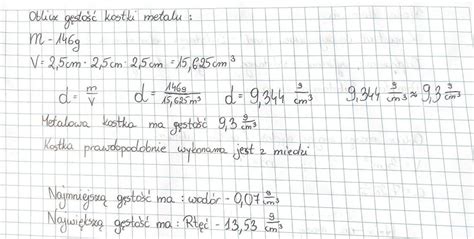 Oblicz gęstość kostki metalu :
m - 146g
V = 2,5cm · 2,5cm · 2,5cm = 15,625cm³
d = m/v d = 146g/15,625m³ d = 9,344 g/cm³ 9,344 g/cm³ ≈ 9,3 g/cm³
Metalowa kostka ma gęstość 9,3 g/cm³
Kostka prawdopodobnie wykonana jest z miedzi
Najmniejszą gęstość ma : wodór - 0,07 g/cm³
Największą gęstość ma : Rtęć - 13,53 g/cm³